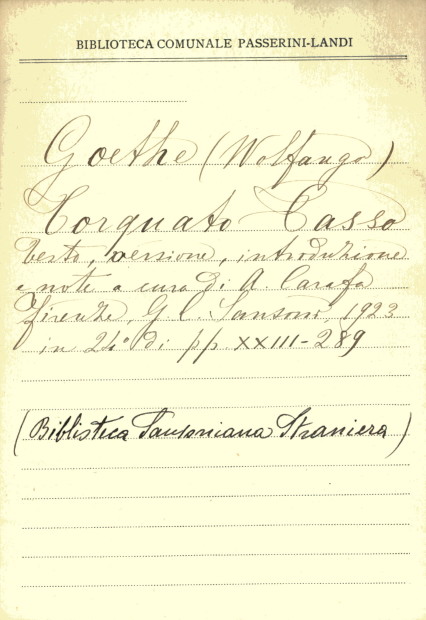 BIBLIOTECA COMUNALE PASSERINI-LANDI
Goethe (Wolfango)
Torquato Tasso
Testo, versione, introduzione
e note a cura di A. Carafa
Firenze, G. C. Sansoni, 1923
in 24° di pp. XXIII-289
(Biblioteca Sansoniana Straniera)